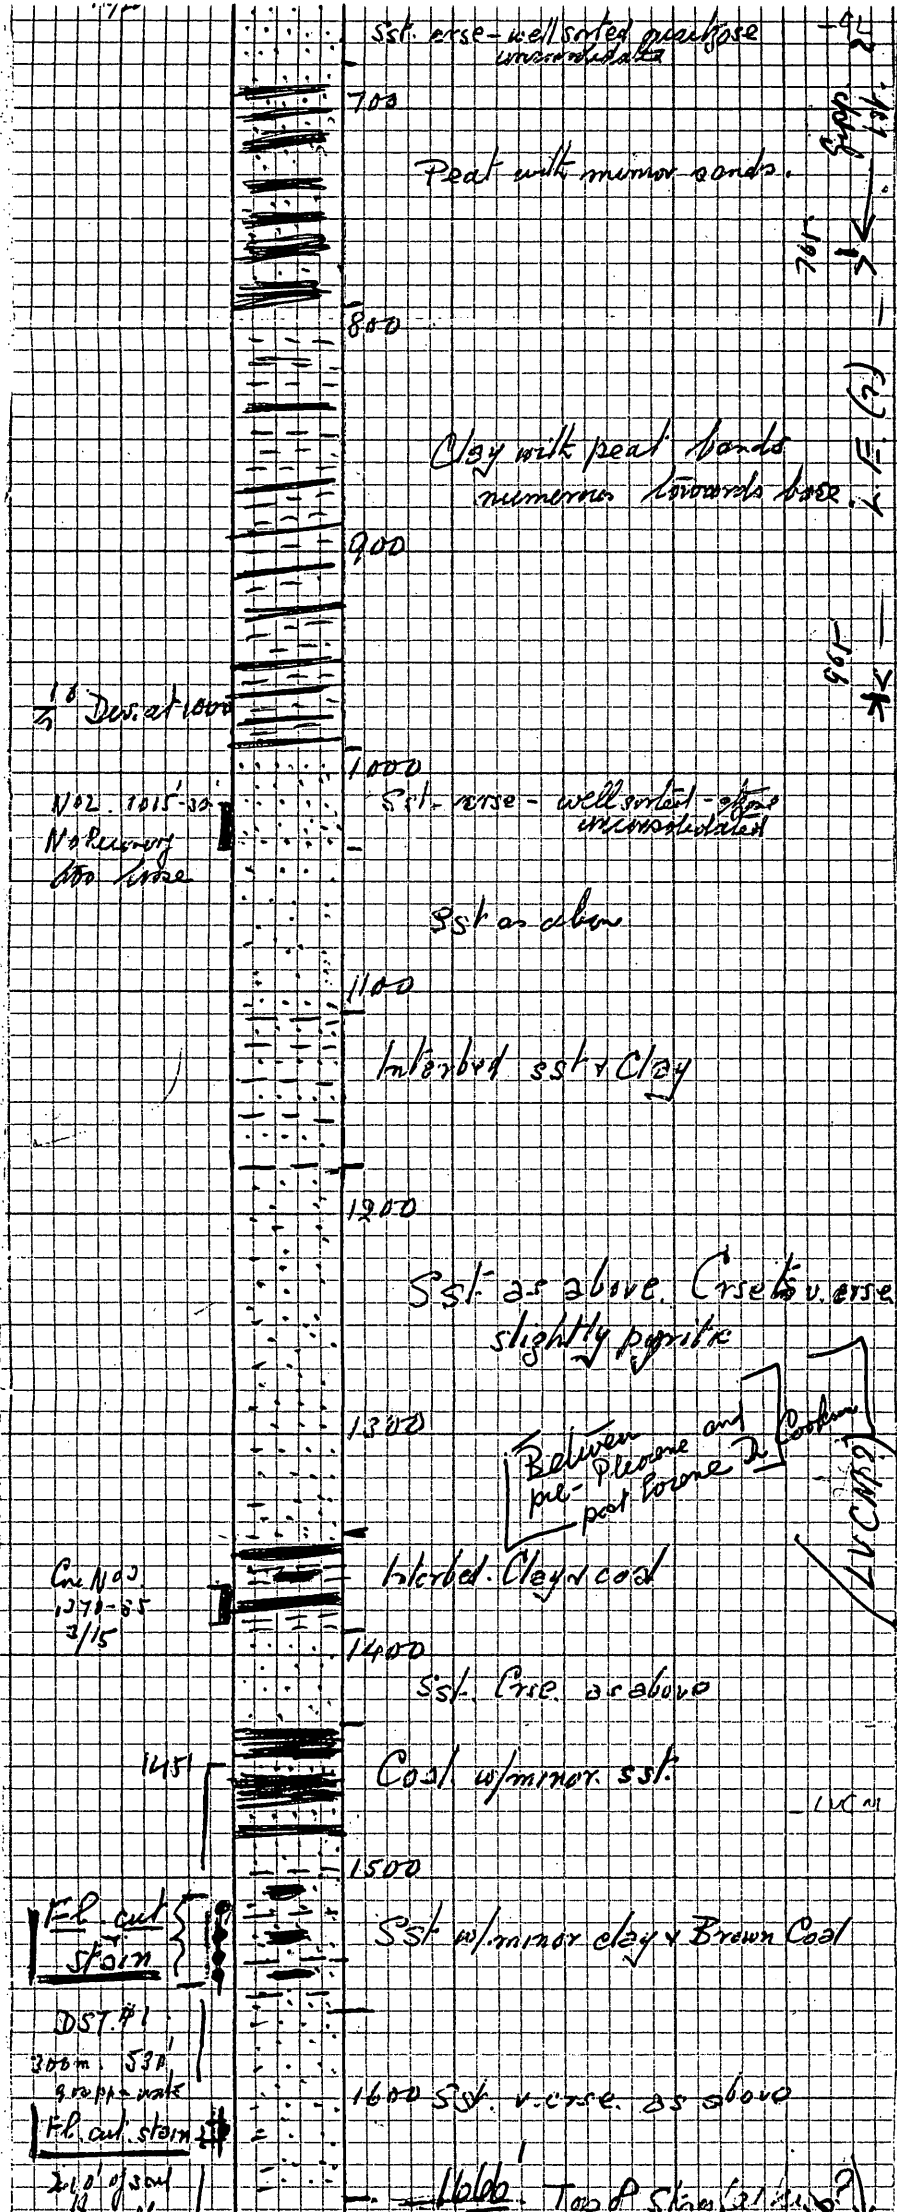 Sst. crse - well sorted quartzose
unconsolidated
700
Peat with minor sands.
765
800
Clay with peat bands
numerous towards base
900
965
Dev. at 1000
1000
No2. 1015'-30'
Sst - crse - well sorted -
unconsolidated
No Recovery
too loose
Sst as above
1100
Interbed sst & Clay
1200
Sst as above. Crse to v. crse
slightly pyritic
1300
Between
pre-Pliocene and
post Eocene
Cookson
LVCM
Interbed. Clay & coal
Core No3.
1370-85
3/15
1400
Sst. Crse. as above
1451
Coal w/minor sst.
LVCM
1500
Fl. cut
stain
Sst w/minor clay & Brown Coal
DST.#1
300m. 530'
1600 Sst. v. crse. as above
Fl. cut. stain
210' of
Top of